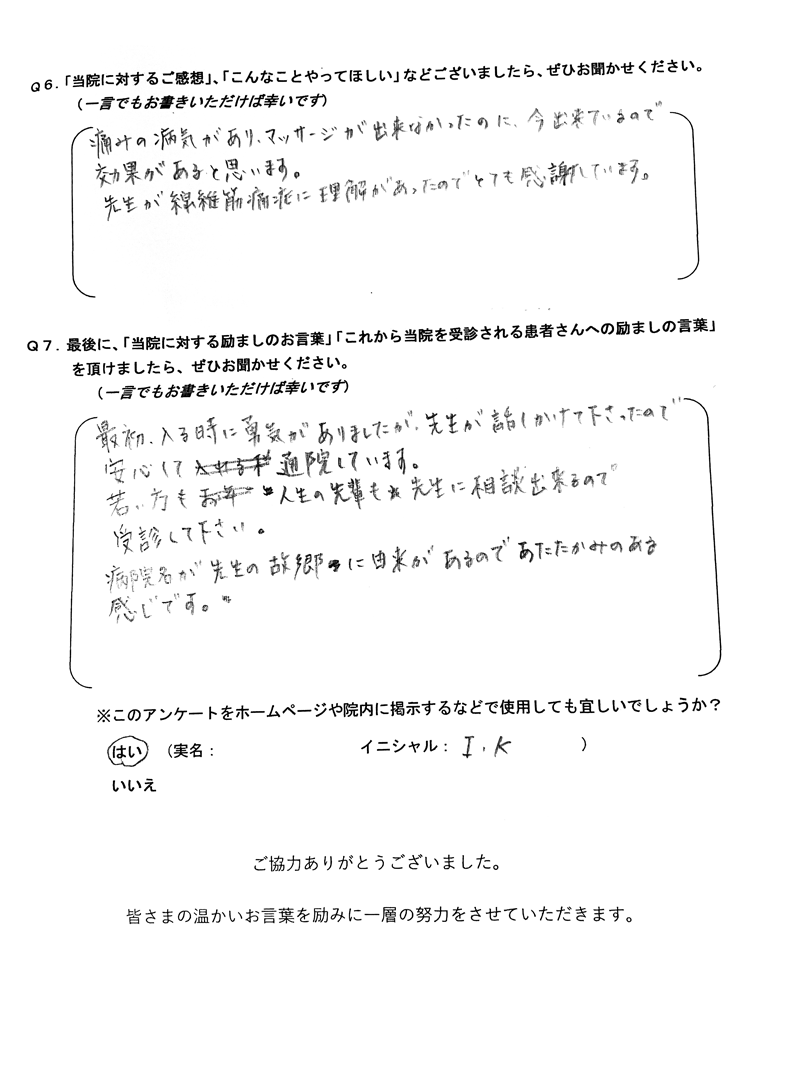 Q6.「当院に対するご感想」、「こんなことやってほしい」などございましたら、ぜひお聞かせください。
(一言でもお書きいただけば幸いです)
痛みの病気があり、マッサージが出来なかったのに、今出来ているので
効果があると思います。
先生が線維筋痛症に理解があったのでとても感謝しています。
Q7.最後に、「当院に対する励ましのお言葉」「これから当院を受診される患者さんへの励ましの言葉」
を頂けましたら、ぜひお聞かせください。
(一言でもお書きいただけば幸いです)
最初、入る時に勇気がありましたが、先生が話しかけて下さったので
安心して 通院しています。
若い方も 人生の先輩も 先生に相談出来るので
受診して下さい。
病院名が先生の故郷に由来があるのであたたかみのある
感じです。
※このアンケートをホームページや院内に掲示するなどで使用しても宜しいでしょうか?
はい (実名: イニシャル: I.K )
いいえ
ご協力ありがとうございました。
皆さまの温かいお言葉を励みに一層の努力をさせていただきます。